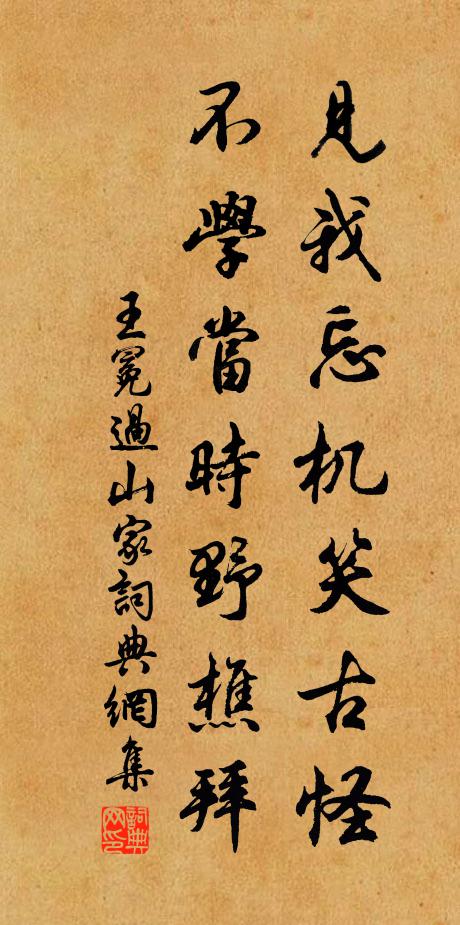 見我忘机笑古怪
不學當時野樵拜
王冕過山家詞典網集
詞典網印